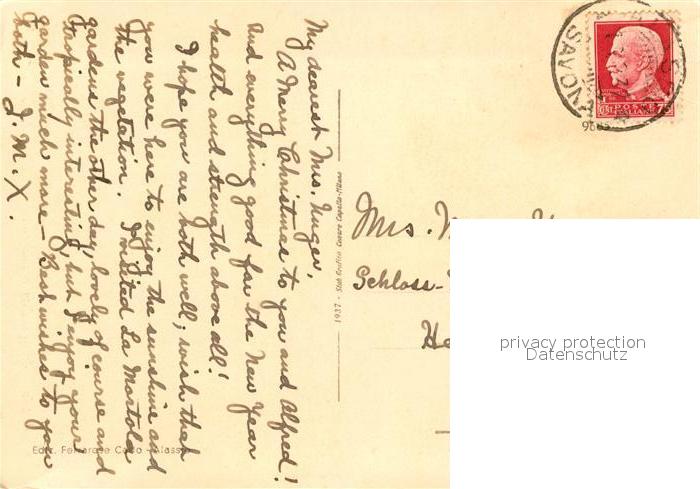 My dearest Mrs. Unger,
A Merry Christmas to you and Alfred!
And everything good for the New Year
health and strength above all!
I hope you are both well; wish that
you were here to enjoy the sunshine and
the vegetation. I visited La Mortola
gardens the other day, lovely of course and
tropically interesting, but I enjoy your
garden much more — Best wishes to you
both — J. M. X.
Ediz. Ferrarese Carlo Alassio
1937 - Stab. Grafico Cesare Capello - Milano
SAVONA
POSTE
ITALIANE
75
CENT.
Mrs.
Schloss-
He
privacy protection
Datenschutz